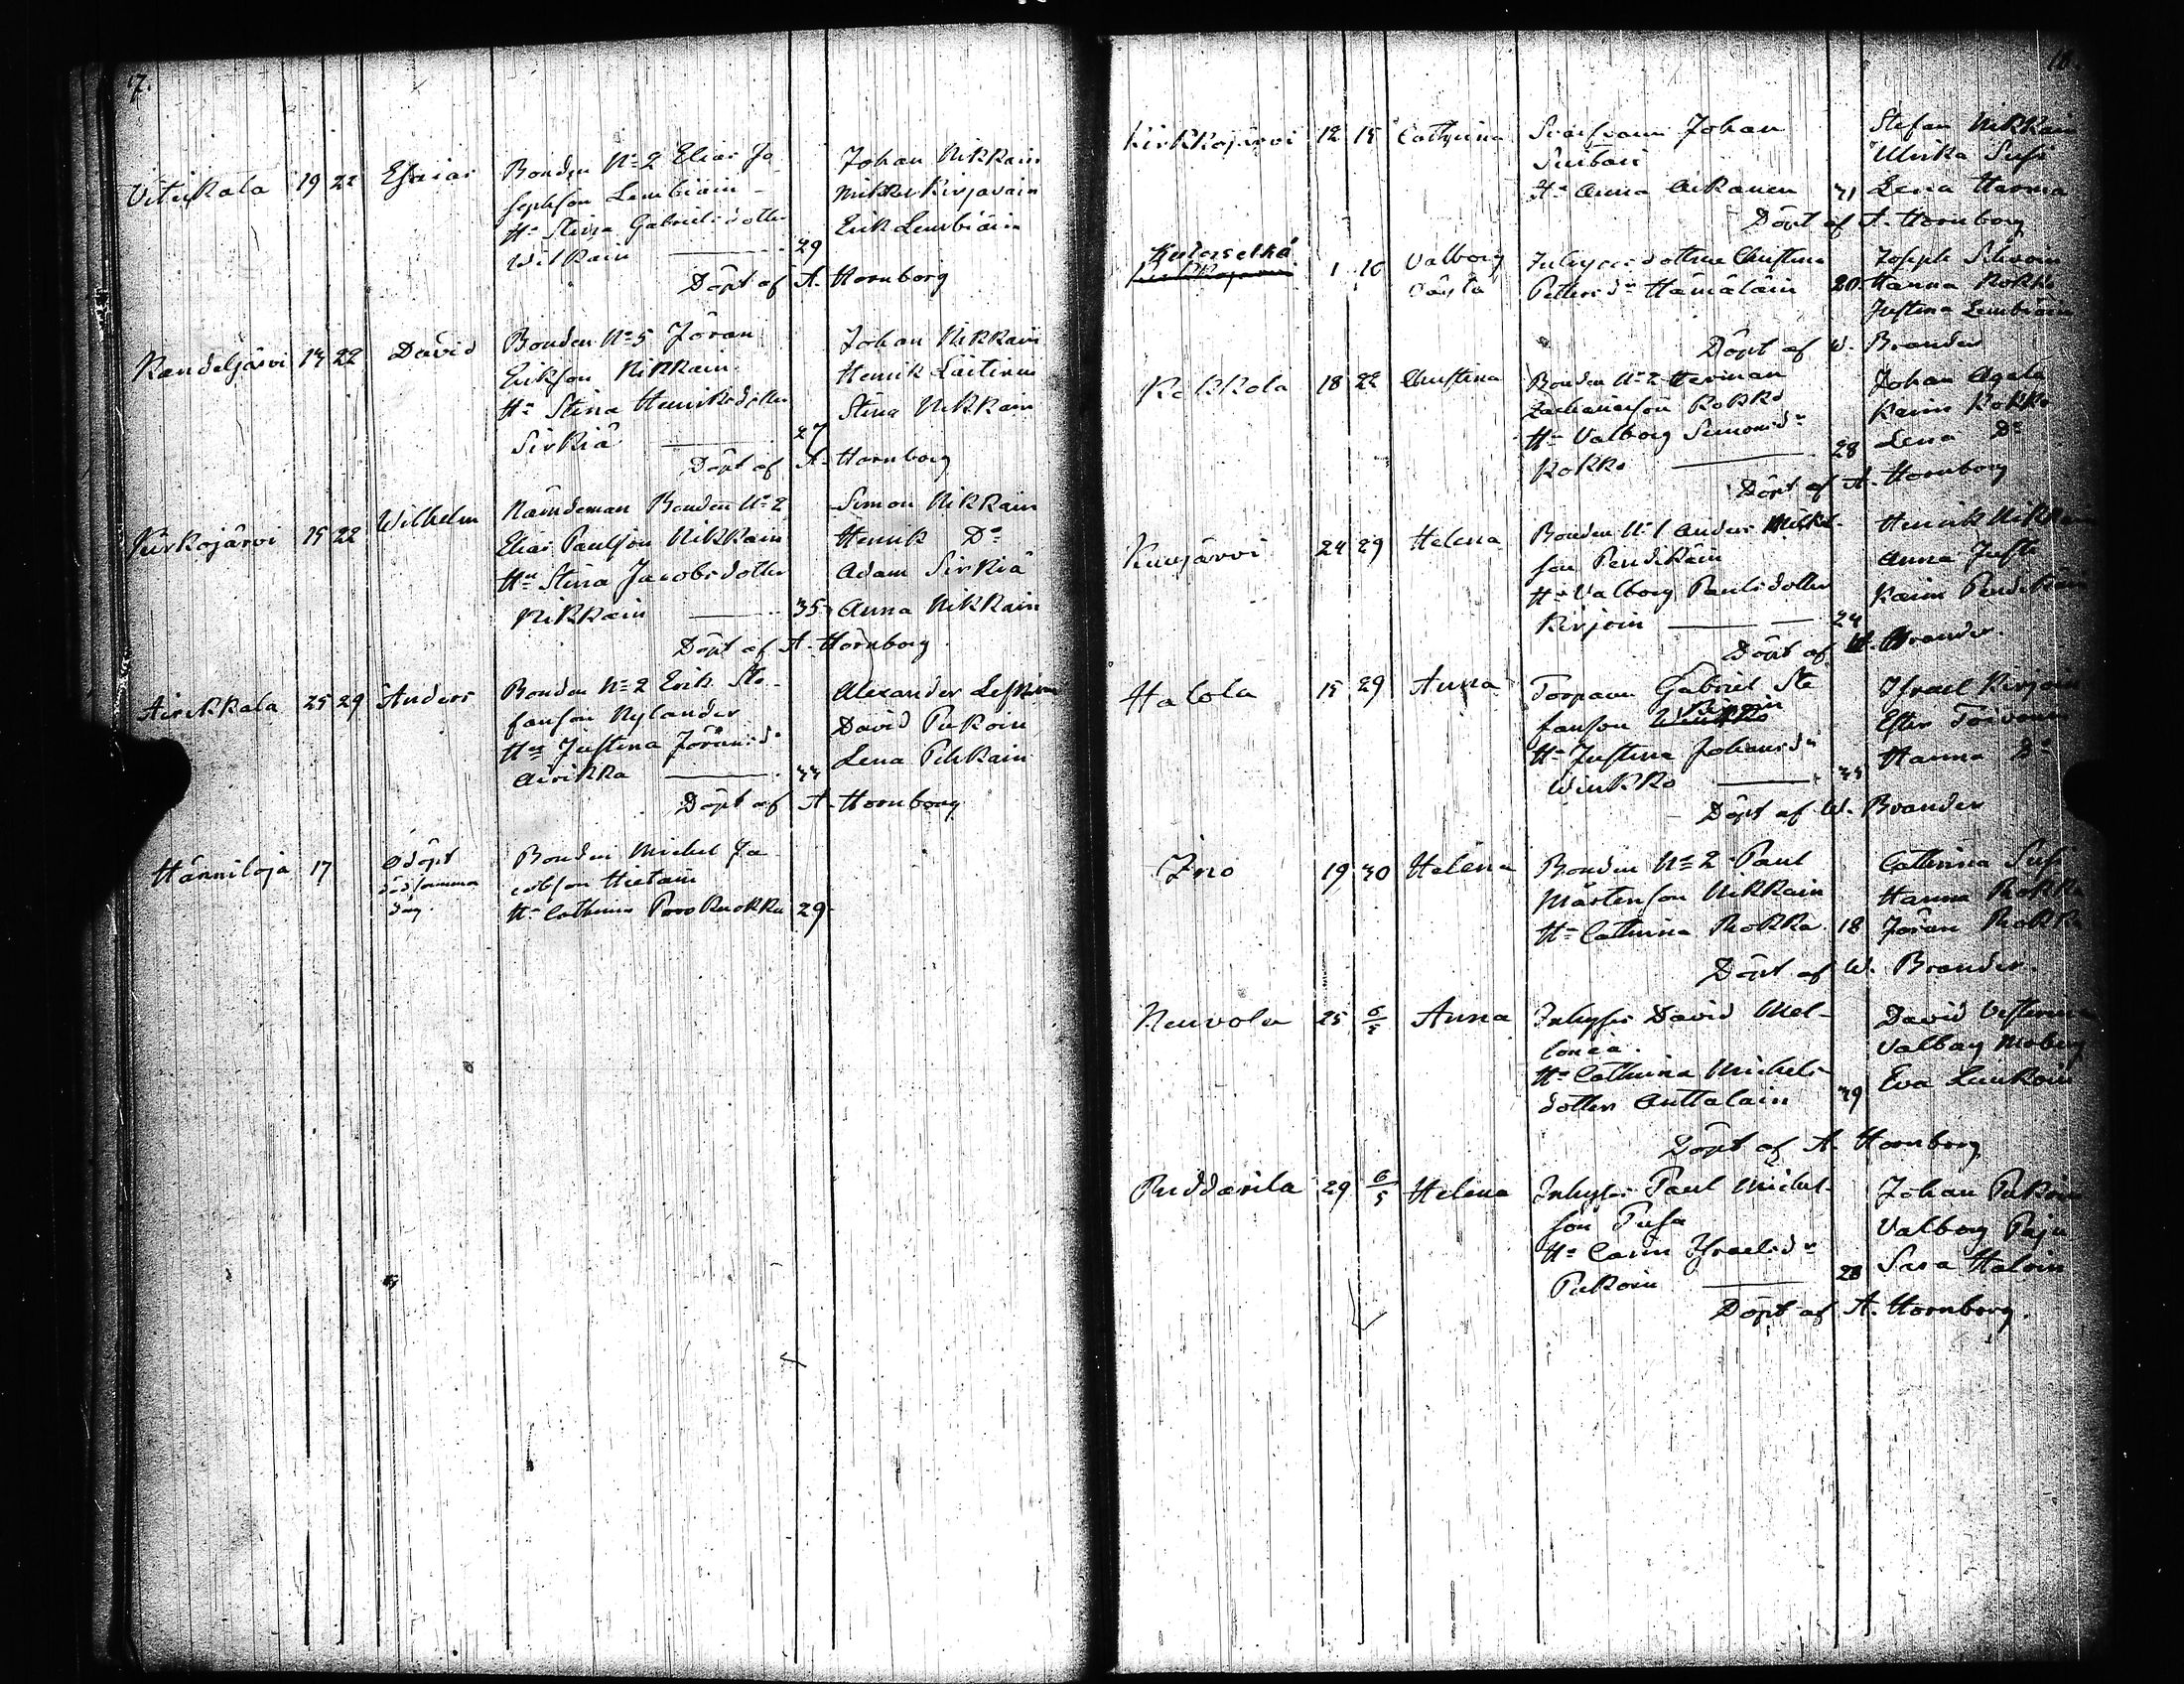 7.
Vitikala 19 22 Esaias Bonden No 2 Elias Jo
sephson Lembiäin
Hu Stina Gabrielsdotter
Wilkain 29
Johan Nikkain
Mikkel Kirjavain
Erik Lembiäin
Döpt af A. Hornborg
Kandeljärvi 14 22 David Bonden No 5 Jöran
Erikson Nikkain
Hu Stina Henriksdotter
Sirkiä 27
Johan Nikkain
Henrik Laitinen
Stina Nikkain
Döpt af A. Hornborg
Kirkojärvi 15 22 Wilhelm Nämdeman Bonden No 2
Elias Paulson Nikkain
Hu Stina Jacobsdotter
Nikkain 35
Simon Nikkain
Henrik Do
Adam Sirkiä
Anna Nikkain
Döpt af A. Hornborg
Airikkala 25 29 Anders Bonden No 2 Erik Ste
fanson Nylander
Hu Justina Jöransdr
Airikka 44
Alexander
David Pukoin
Lena Pilkain
Döpt af A. Hornborg
Hänniloja 17 Odöpt
död samma
dag
Bonden Michel Ja
cobson Huetain
Hu Cathrina Poro Ruokka 29
10.
Kirkkojärvi 12 15 Cathrina Johan
Suibari
Hu Anna Aikanen 41
Stefan Nikkain
Ulrika Susi
Lena
Döpt af A. Hornborg
Kuterselkä
1 10 Valborg
oäkta
Inhyses dottren Christina
Petters dr Hämäläin 20
Joseph Silvoin
Hanna Rokka
Justina Lembiäin
Döpt af W. Brander
Kekkola 18 22 Christina Bonden No 2 Herman
Zachariason Kokko
Hu Valborg Simonsdr
Kokko 28
Johan Agala
Karin Kokko
Lena Do
Döpt af A. Hornborg
Kuujärvi 24 29 Helena Bonden No 1 Anders Mickel
son Pendikäin
Hu Valborg Paulsdotter
Kirjoin 24
Henrik Nikkain
Anna
Karin Pendikäin
Döpt af W. Brander.
Halola 15 29 Anna Torparen Gabriel Ste
fanson
Hu Justina Johansdr
Winkko 35
Israel Kirjoin
Ester Toivonen
Hanna Do
Döpt af W. Brander
Ino 19 30 Helena Bonden No 2 Paul
Mårtenson Nikkain
Hu Cathrina Rokka 18
Cathrina Susi
Hanna Rokka
Jöran Rokka
Döpt af W. Brander.
Neuvola 25 6/5 Anna Inhyses David Mel-
lonea
Hu Cathrina Michels
dotter Anttalain 39
David
Valborg Moberg
Eva Luukoin
Döpt af A. Hornborg
Puddarila 29 6/5 Helena Inhyses Paul Michel-
son Pusa
Hu Carin Israelsdr
Pukoin 28
Johan Pukoin
Valborg Paju
Sara Haloin
Döpt af A. Hornborg.